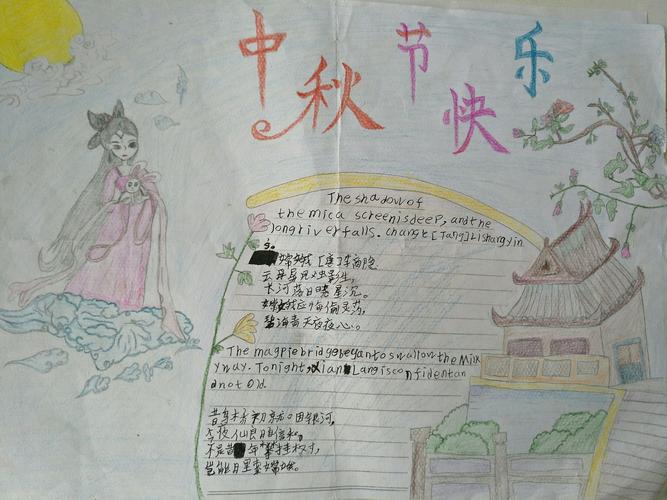 中秋节快乐
The shadow of
the mica screenisdeep, and the
longriverfalls. change [Tang]Lishangyin
嫦娥 [唐] 李商隐
云母屏风烛影
长河落日 星沉。
嫦娥应悔偷灵药,
碧海青天夜夜心。
The magpiebridgebeganto swallow the Milk
yway. Tonight, Xian Langiscon fidentan
dnot Old.
鹊桥初就咽银河,
今夜仙郎自信和。
不是昔年攀桂树,
岂能月里索嫦娥。